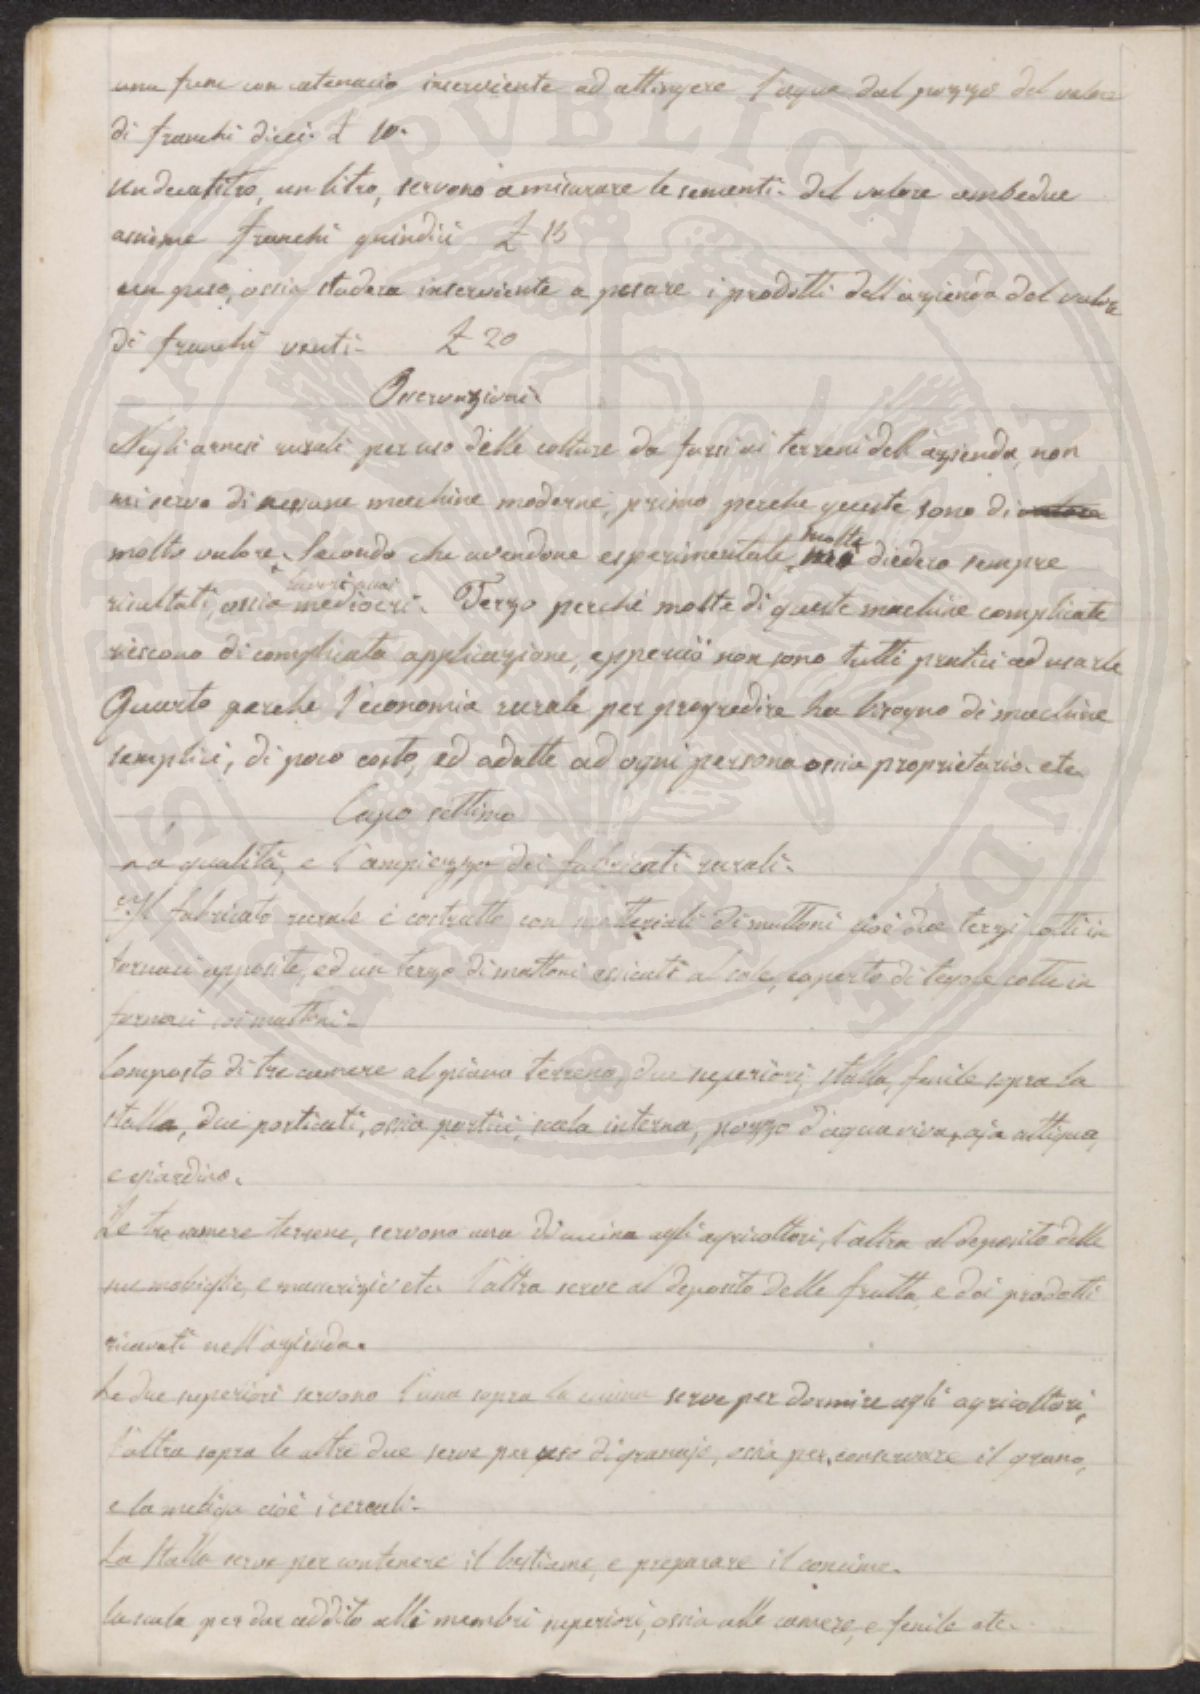 una fune con catenacio inserviente ad attingere l'aqua dal pozzo del valore
di franchi dieci £ 10.
Un decalitro, un litro, servono a misurare le sementi. del valore ambedue
assieme franchi quindici £ 15
un peso, ossia stadera inserviente a pesare i prodotti dell'azienda del valore
di franchi venti- £ 20
Osservazioni.
Negli arnesi rurali per uso delle colture da farsi ai terreni dell'azienda, non
mi servo di nessune macchine moderne, primo perche queste sono di valore
molto valore. Secondo che avendone esperimentate molte mi diedero sempre
risultati, ossia mediocri. Terzo perchè molte di queste machine complicate
riescono di complicata applicazione, epperciò non sono tutti pratici ad usarle
Quarto perche l'economia rurale per progredire ha bisogno di machine
semplici, di poco costo, ed adatte ad ogni persona ossia proprietario. etc.
Capo settimo
La qualità, e l'ampiezza dei fabricati rurali.
Il fabricato rurale è costrutto con materiali di mattoni cioè due terzi cotti in
fornaci apposite, ed un terzo di mattoni essicati al sole, coperto di tegole cotte in
fornaci coi mattoni-
Composto di tre camere al piano terreno, due superiori, stalla, fenile sopra la
stalla, due porticati, ossia portici, scala interna, pozzo d'aqua viva, aja attigua,
e giardino.
Le tre camere terrene, servono una di cucina agli agricoltori, l'altra al deposito delle
sue mobiglie, e masserizie etc. l'altra serve al deposito delle frutta, e dei prodotti
ricavati nell'azienda.
Le due superiori servono l'una sopra la cucina serve per dormire agli agricoltori,
l'altra sopra le altre due serve per uso di granajo, ossia per conservare il grano,
e la meliga cioè i cereali-
La stalla serve per contenere il bestiame, e preparare il concime.
la scala per dar addito alli membri superiori, ossia alle camere, e fenile etc.